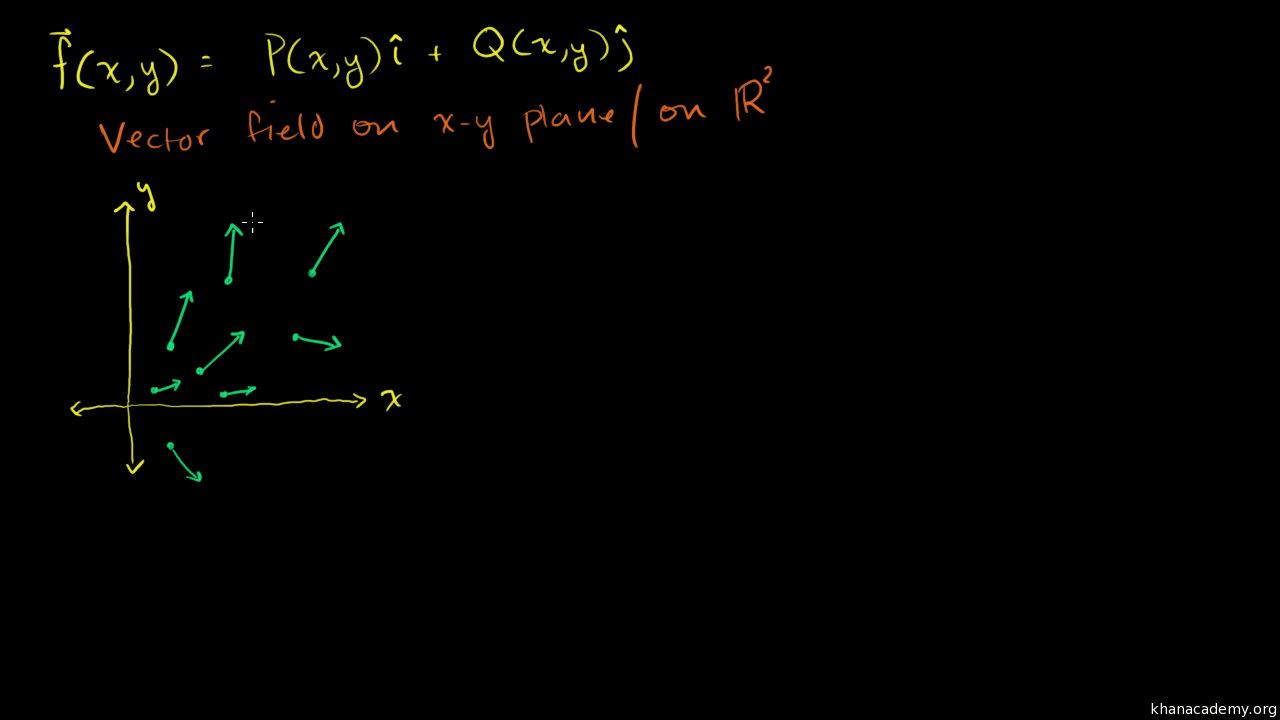 f⃗(x,y) = P(x,y)î + Q(x,y)ĵ
Vector field on x-y plane/on ℝ²
y
x
khanacademy.org